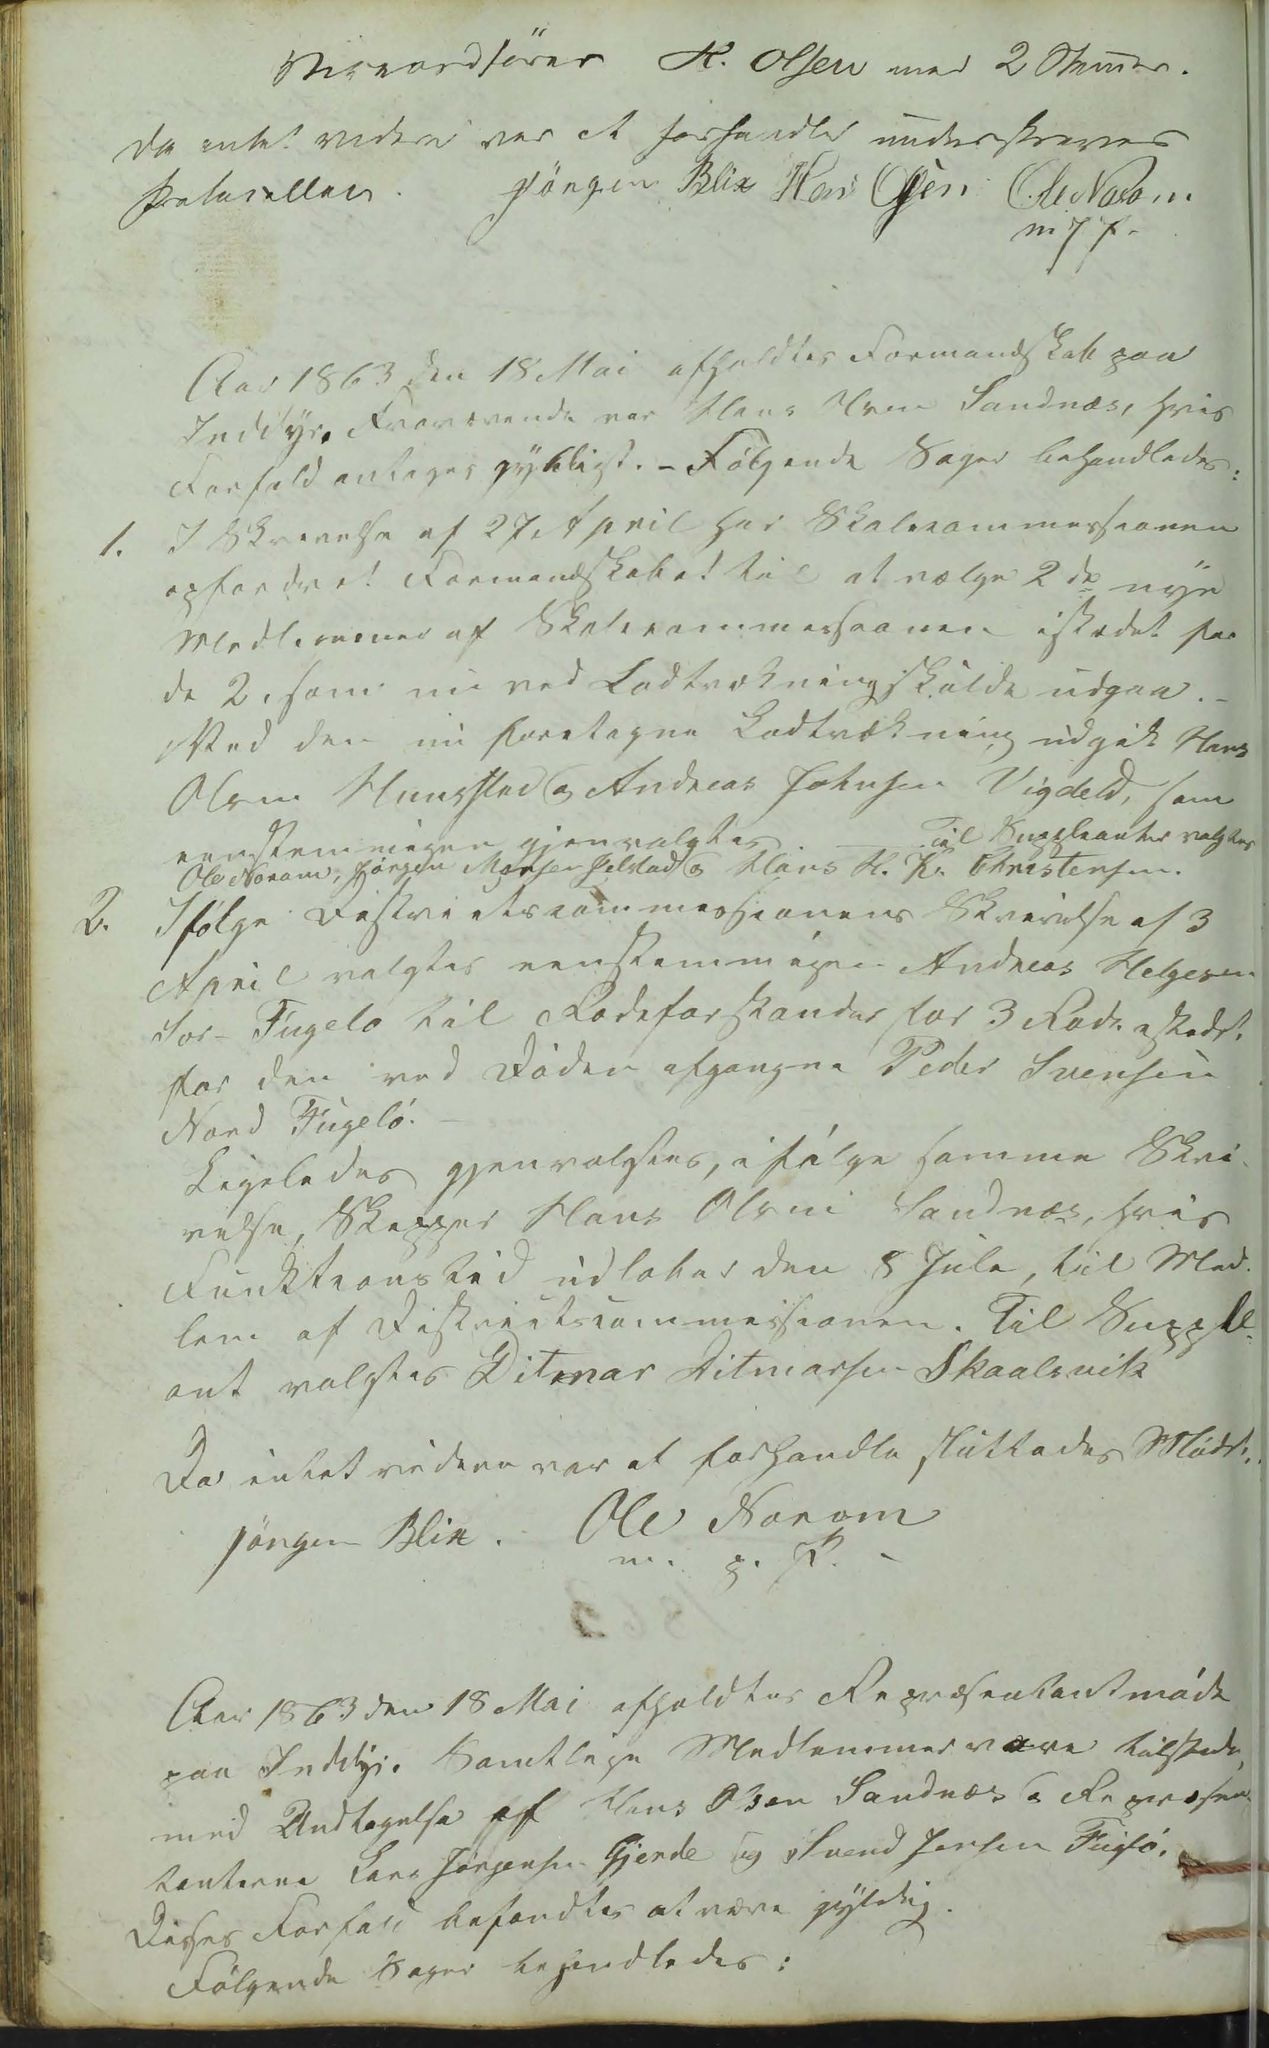 Viseordfører H. Olsen med 2 Stemmer.
Da intet videre var at forhandle underskreves
Protocollen. Jörgen Blix Hans Olsen Ole Norom
m p p.
Aar 1863 den 18 Mai afholdtes Formandskab paa
Inddyr. Fraværende var Hans Olsen Sandnæs, hvis
Forfald antages gyldigt. - Følgende Sager behandledes:
1. I Skrivelse af 27 April har Skolecommissionen
opfordret Formandskabet til at vælge 2de nye
Medlemmer af Skolecommissionen istedet for
de 2, som nu ved Lodtrækning skulde udgaa. -
Ved den nu foretagne Lodtrækning udgik Hans
Olsen & Andreas Johnsen Vigdeld, som
eenstemmigen gjenvalgtes Til Suppleanter valgtes
Ole Norom, Jørgen & Hans H. K. Christensen.
2. Ifølge Districtscommissionens Skrivelse af 3
April valgtes eenstemmigen Andreas Helgesen
Sør-Fugelø til Rodeforstander for 3 Rode istedet
for den ved Døden afgangne Peder Svensen
Nord Fugelø. -
Ligeledes gjenvalgtes, ifølge samme Skri-
velse, Skipper Hans Olsen Sandnæs, hvis
Funktionstid udløber den 8 Juli, til Med-
lem af Districtscommissionen. Til Supple-
ant valgtes Ditmar Ditmarsen Skaalsvik
Da intet videre var at forhandle sluttedes Mødet.
Jörgen Blix. Ole Norom
m. p. P. -
Aar 1863 den 18 Mai afholdtes Repræsentantmøde
paa Inddyr. Samtlige Medlemmer vare tilstede,
med Undtagelse af Hans Olsen Sandnæs & Repræsen-
tanterne Lars Jørgensen Gjerde og Svend Jensen Fuglø.
Disses Forfald befandtes at være gyldig.
Følgende Sager behandledes: